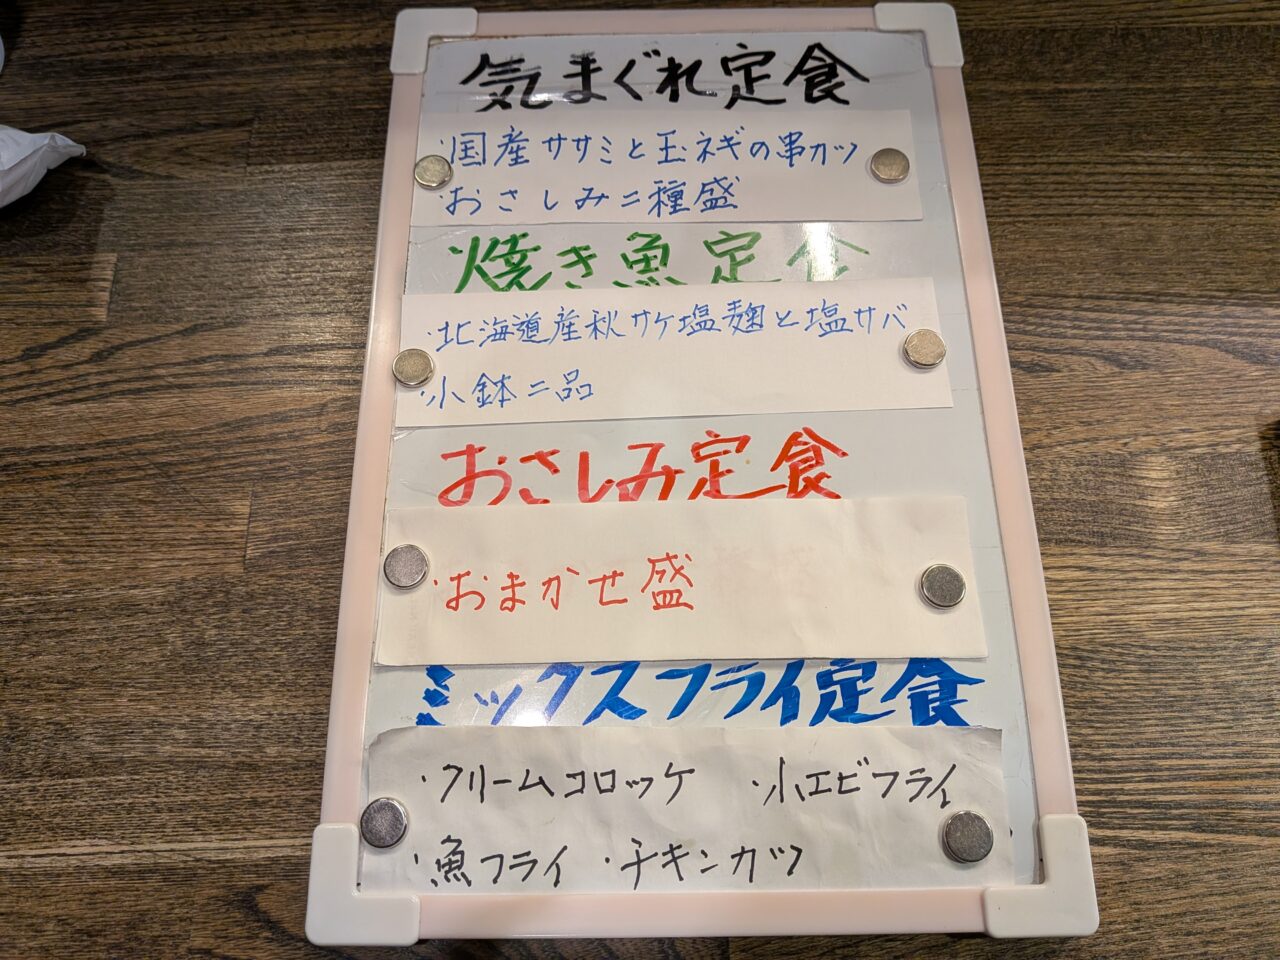 気まぐれ定食
・国産ササミと玉ネギの串カツ
・おさしみ二種盛
焼き魚定食
・北海道産秋サケ塩麹と塩サバ
・小鉢二品
おさしみ定食
・おまかせ盛
ミックスフライ定食
・クリームコロッケ ・小エビフライ
・魚フライ ・チキンカツ